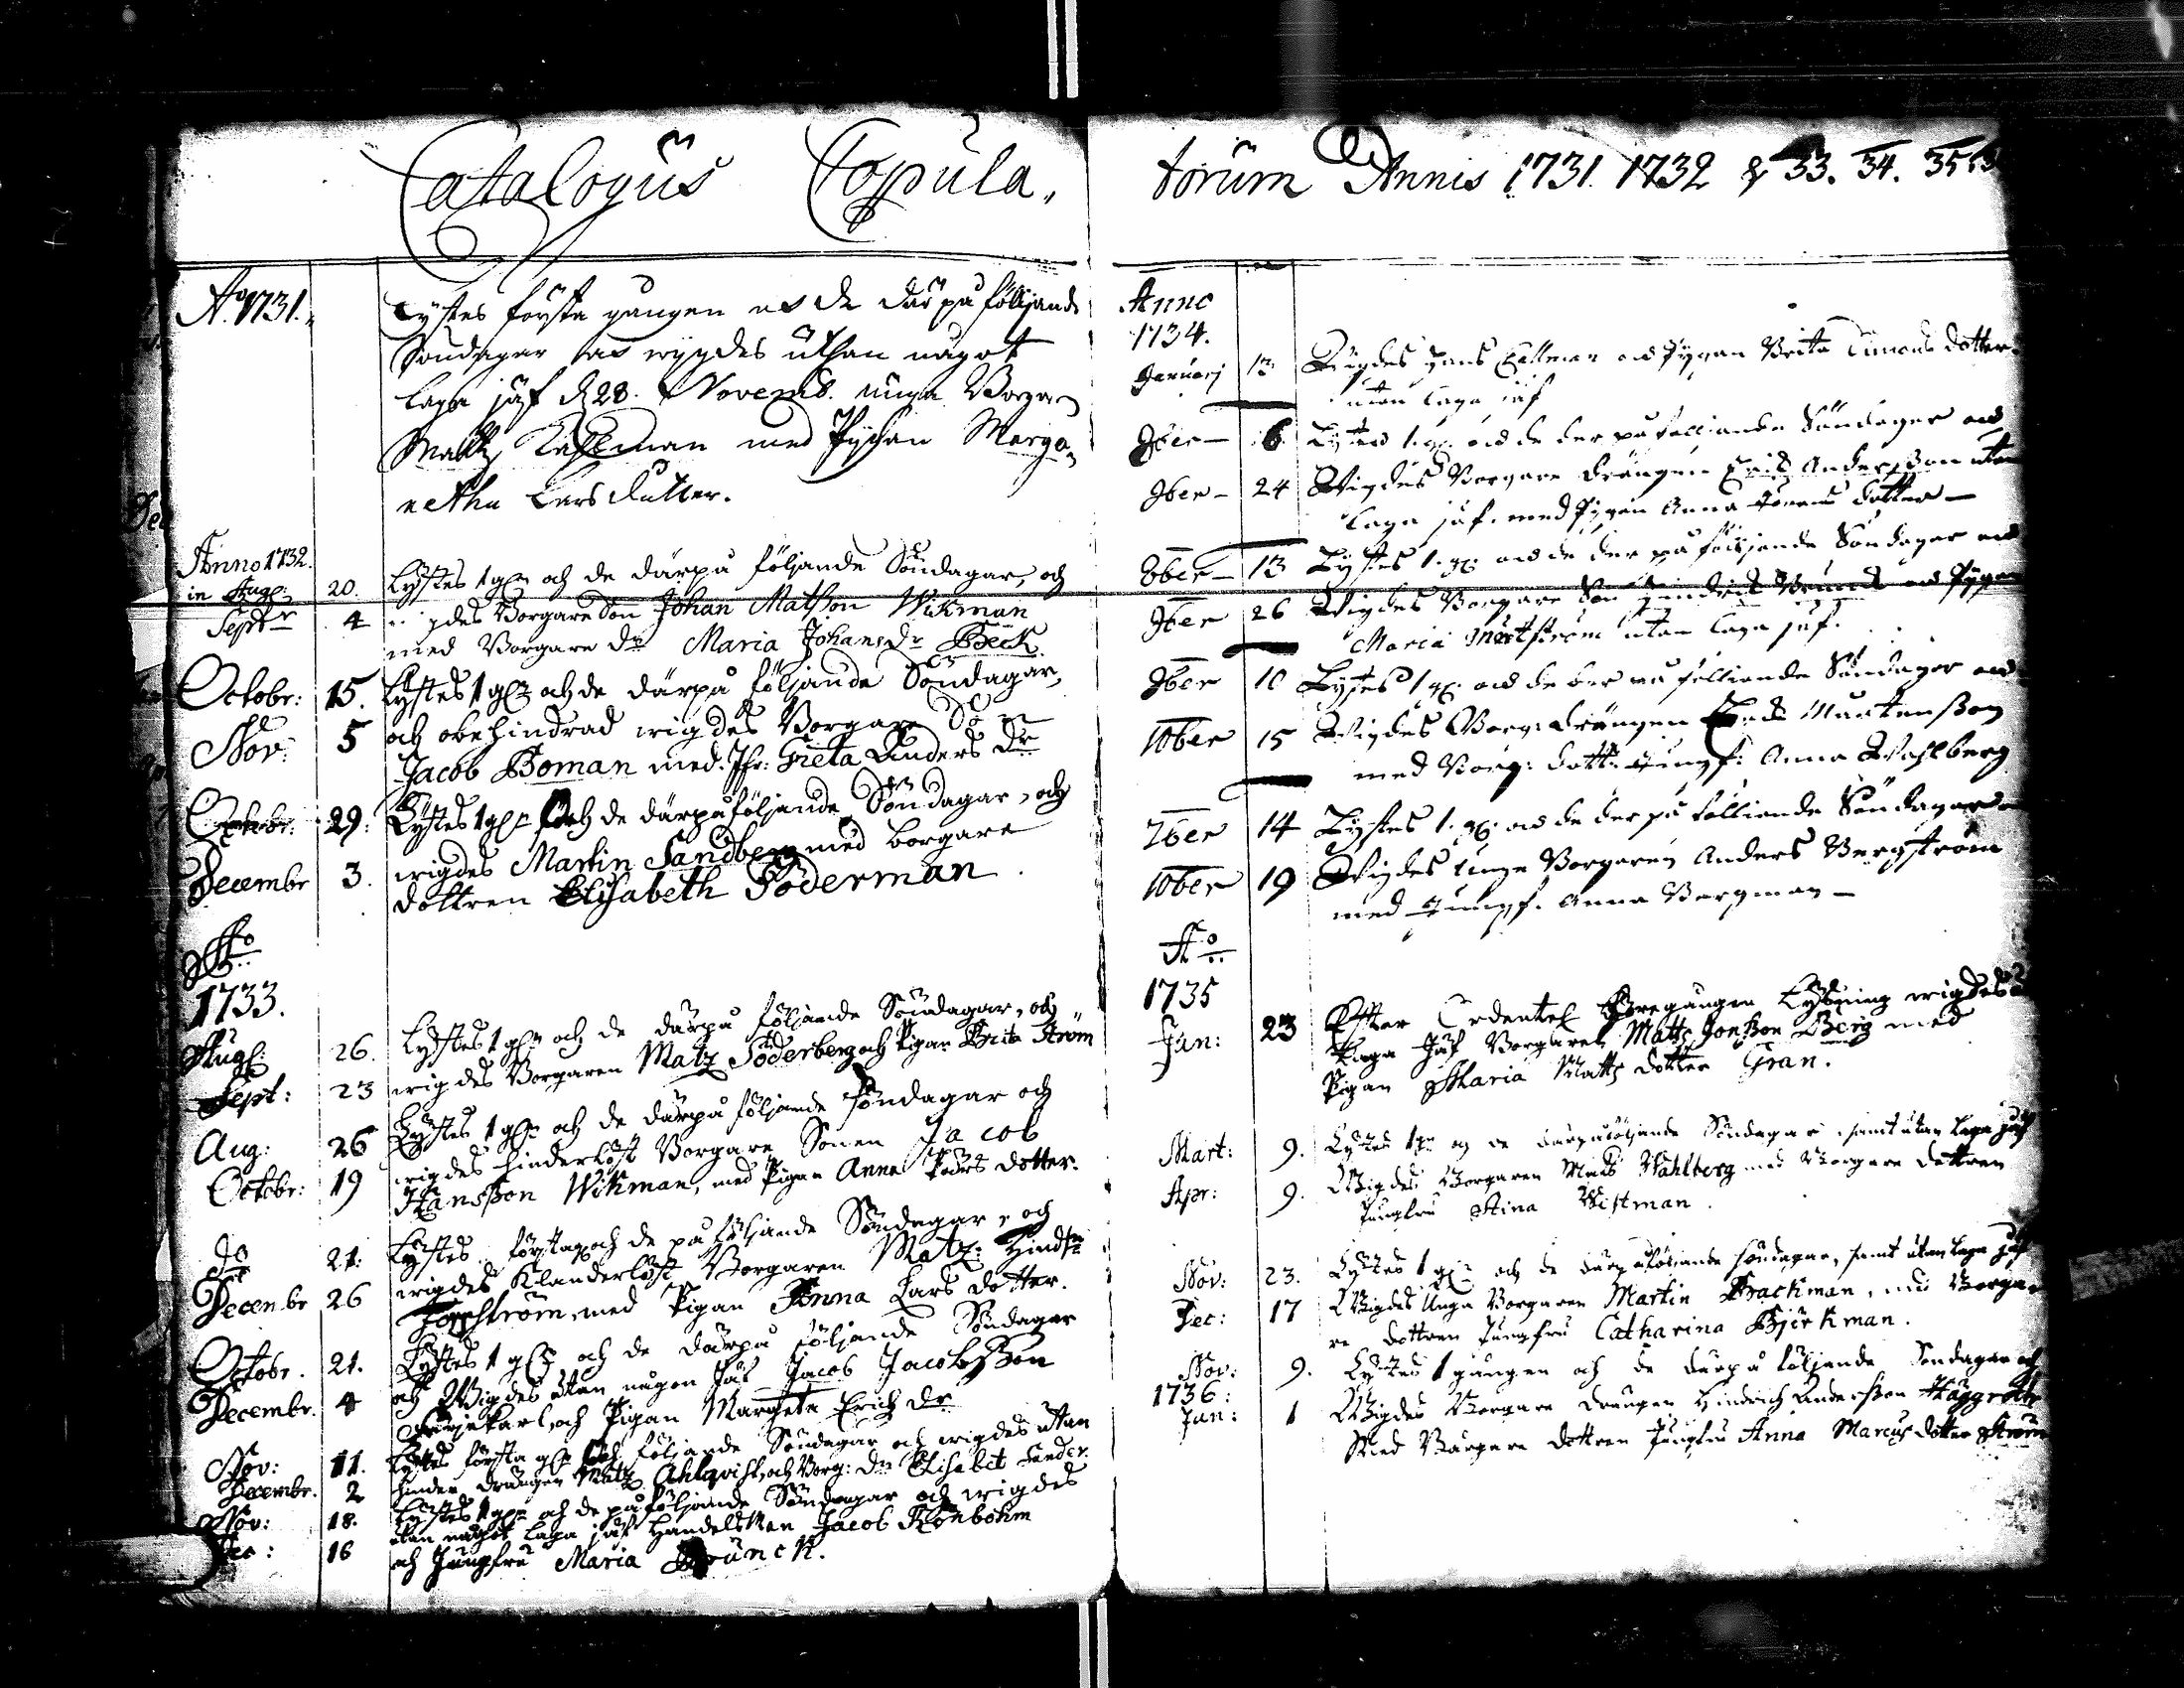 Catalogus Copula,
A:o 1731.
Lystes första gången och de där på följande
Söndagar samt wygdes uthan något
laga jäf d 28. Novemb. unga Borgaren
Mattz Kasseman med Pijgan Marga,
retha Lars dotter.
Anno 1732.
in Aug: 20. Lystes 1 g: och de därpå följande Söndagar, och
Septr 4 wigdes Borgare Son Johan Matsson Wikman
med Borgare dr Maria Johans dr Beck.
Octobr: 15. Lystes 1 g: och de därpå följande Söndagar,
Nov: 5 och obehindrad wigdes Borgare Son
Jacob Boman med Jfr: Greta Anders dr
Octobr: 29. Lystes 1 g: och de därpå följande Söndagar, och
Decembr 3. wigdes Martin Sandberg med borgare
dottren Elisabeth Söderman.
Ao
1733.
Aug: 26. Lystes 1 g: och de därpå följande Söndagar, och
Sept: 23 wigdes Borgaren Matz Söderberg och Pigan Brita Ström
Aug: 26 Lystes 1 g: och de därpå följande Söndagar och
Octobr: 19 wigdes hinderlöst Borgare Sonen Jacob
Hansson Wikman, med Pigan Anna Pärs dotter.
do 21. Lystes första g och de på följande Söndagar, och
Decembr 26 wigdes Klanderlöst Borgaren Matz: Hindr
Forsström, med Pigan Anna Lars dotter.
Octobr. 21. Lystes 1 g: och de därpå följande Söndagar
Decembr. 4 och Wigdes utan någon Jäf Jacob Jacobsson
Färjekarl, och Pigan Margeta Erich dr
Nov: 11. Lystes första g: och följande Söndagar och wigdes utan
Decembr. 2 hinder drängen Matz Ahlqvist, och Borg: dr Elisabet Sander.
Nov: 18. Lystes 1 g: och de påföljande Söndagar och wigdes
Dec: 16 utan något laga jäf Handelsman Jacob Rönbohm
och Jungfru Maria Brunck.
torum Annis 1731. 1732 & 33. 34. 35
Anno
1734.
Januarij 13 Wigdes Hans Callman och Pygan Brita Simons dotter
utan laga jäf
9ber 6 Lystes 1. g: och de der på följande Söndager och
9ber 24 Wigdes Borgare drängen Eric Andersson utan
laga jäf. med Pygan Anna dotter
8ber 13 Lystes 1. g: och de der på följande Söndager och
9ber 26 Wigdes Borgare Son Hendric Brunck och Pygan
Maria utan laga jäf.
9ber 10 Lystes 1 g: och de der på följande Söndager och
10ber 15 Wigdes Borg: drängen Eric Mårtensson
med Borg: dott: Jungf: Anna Wahlberg
7ber 14 Lystes 1. g: och de der på följande Söndager
10ber 19 Wigdes unge Borgaren Anders Bergström
med Jungf. Anna Bergman
Ao
1735
Jan: 23 Efter Ordentel. Föregången Lysning wigdes
laga Jäf Borgaren Matts Jonsson Berg med
Pigan Maria Matts dotter Gran.
Mart: 9. Lystes 1 g: och de därpåföljande Söndagar, samt utan laga jäf
Apr: 9. Wigdes Borgaren Mats Wahlberg med Borgare dottren
Jungfru Stina Wistman.
Nov: 23. Lystes 1 g: och de därpåföljande söndagar, samt utan laga jäf
Dec: 17 Wigdes Unga Borgaren Martin Brackman, med Borga,
re dottren Jungfru Catharina Björkman.
Nov: 9. Lystes 1 gången och de därpå följande Söndagar och
1736:
Jan: 1 Wigdes Borgare drängen Hindrich Andersson Häggroth
Med Borgare dottren Jungfru Anna Marcus dotter Ström